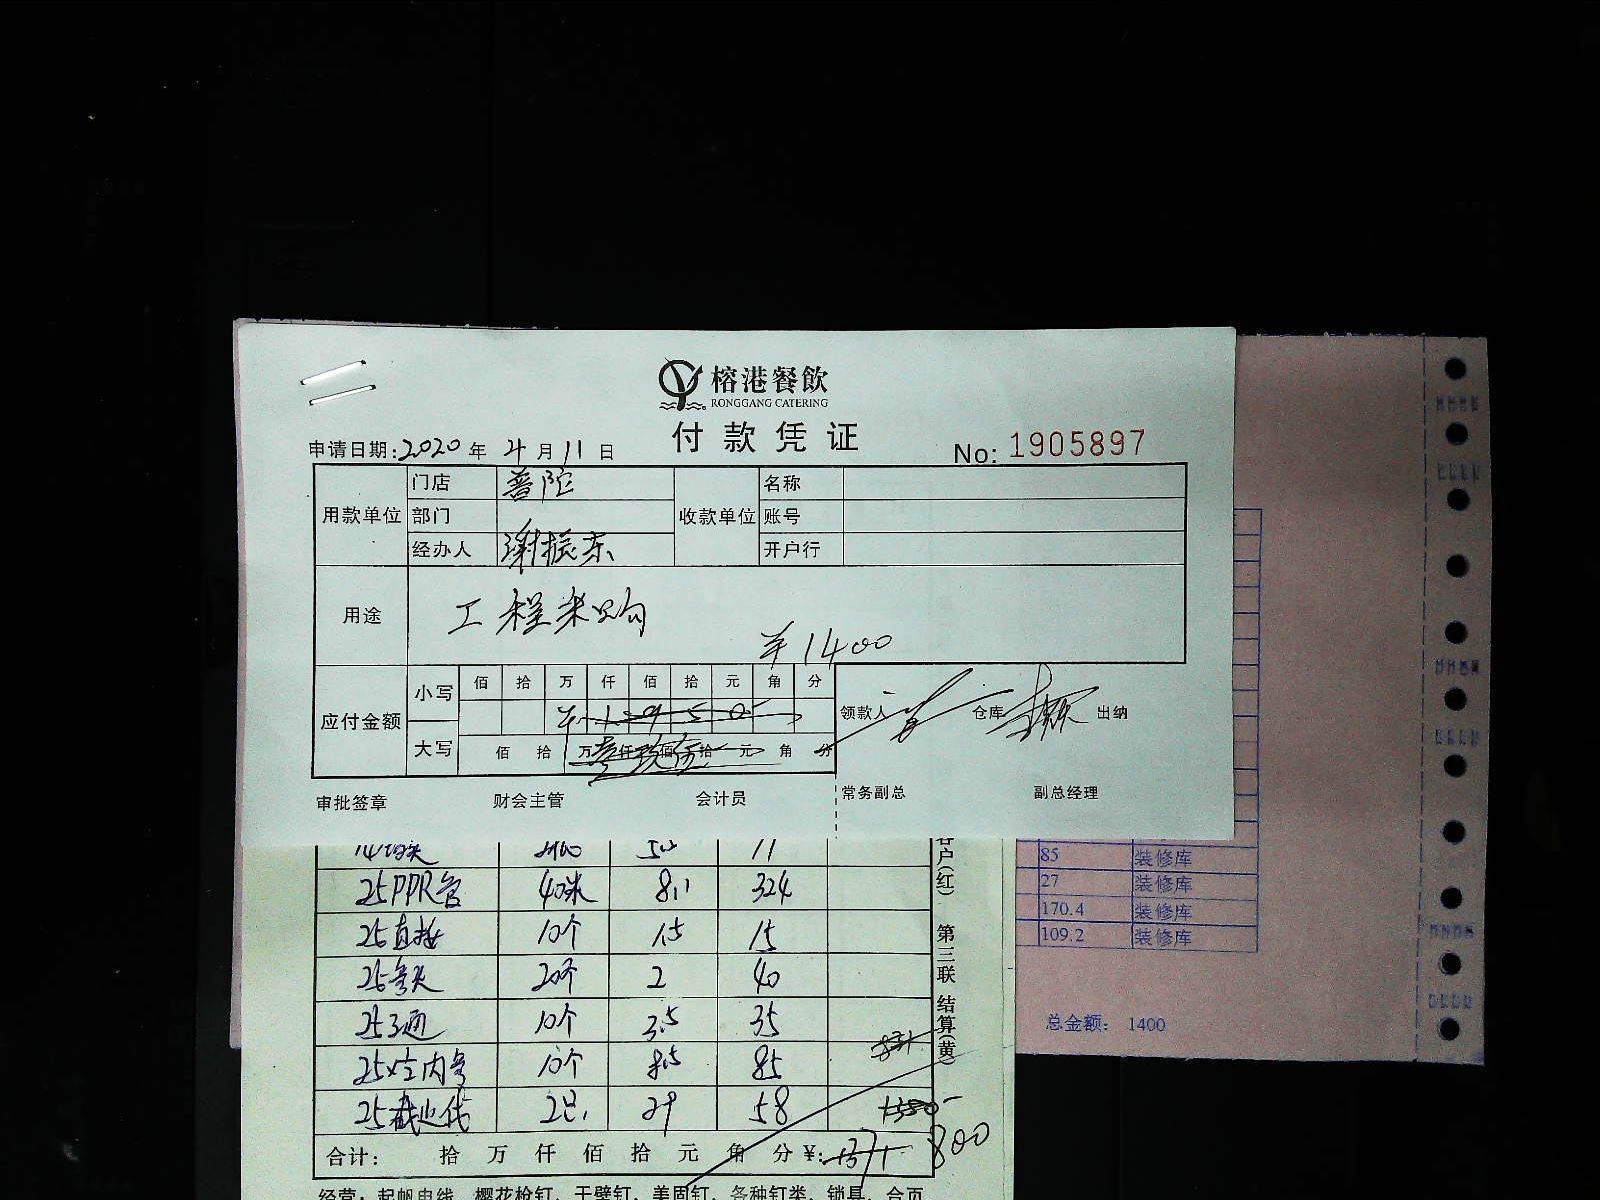 榕港餐飲
RONGGANG CATERING
付款凭证
申请日期:2020年4月11日
No: 1905897
用款单位 门店 普陀 收款单位 名称
部门 账号
经办人 谢振东 开户行
用途 工程采购
¥1400
应付金额 小写 佰 拾 万 仟 佰 拾 元 角 分
¥ 1 9 5 0
领款人 仓库 出纳
大写 佰 拾 万 仟 佰 拾 元 角 分
审批签章 财会主管 会计员 常务副总 副总经理
11
25PPR管 40米 8.1 324
25直接 10个 1.5 15
25弯头 20个 2 40
25三通 10个 3.5 35
25 内弯 10个 8.5 85
25 29 58
800
合计: 拾 万 仟 佰 拾 元 角 分 ¥:
经营: 起帆电线、樱花枪钉、干壁钉、美固钉、各种钉类、锁具、合页
客户(红) 第三联 结算(黄)
85 装修库
27 装修库
170.4 装修库
109.2 装修库
总金额: 1400